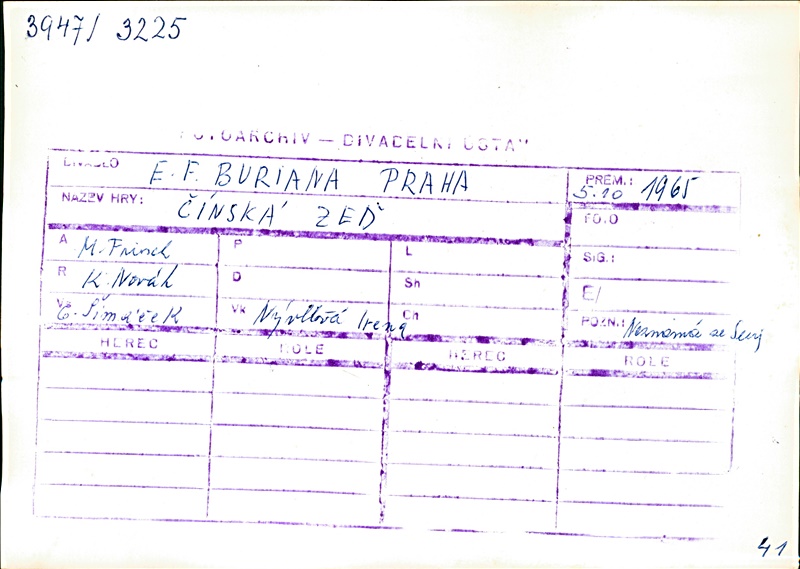 3947/ 3225
FOTOARCHIV – DIVADELNÍ ÚSTAV
DIVADLO E. F. BURIANA PRAHA PREM.: 5.10 1965
NÁZEV HRY: ČÍNSKÁ ZEĎ FOTO
A M. Frisch P L SIG.:
R K. Novák D Sh E/
Vs O. Šimáček Vk Nývltová Irena Ch POZN.: se
HEREC ROLE HEREC ROLE
41